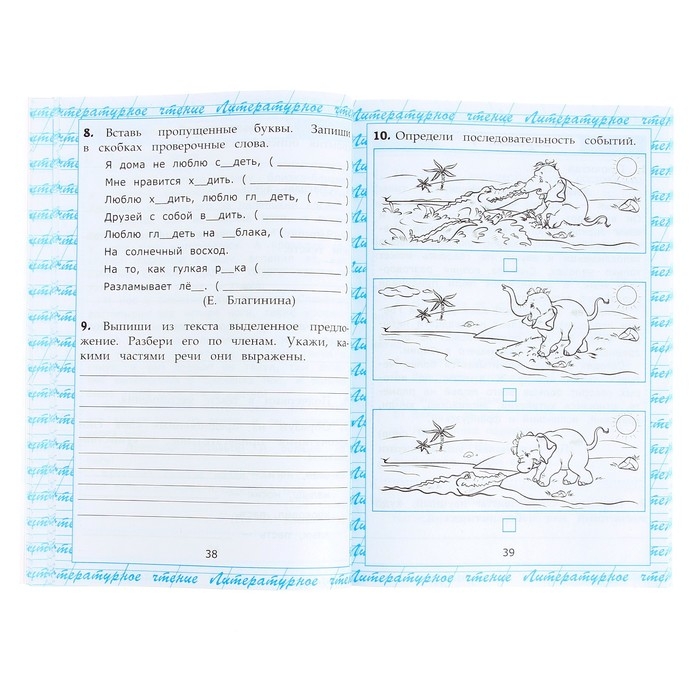 Литературное чтение Литературное
8. Вставь пропущенные буквы. Запиши
в скобках проверочные слова.
Я дома не люблю с__деть, (__________)
Мне нравится х__дить. (__________)
Люблю х__дить, люблю гл__деть, (__
Друзей с собой в__дить. (__________)
Люблю гл__деть на __блака, (______)
На солнечный восход.
На то, как гулкая р__ка (__________)
Разламывает лё__. (__________)
(Е. Благинина)
9. Выпиши из текста выделенное предло-
жение. Разбери его по членам. Укажи, ка-
кими частями речи они выражены.
38
Литературное чтение Литературное
Литературное чтение Литературное
10. Определи последовательность событий.
39
Литературное чтение Литературное